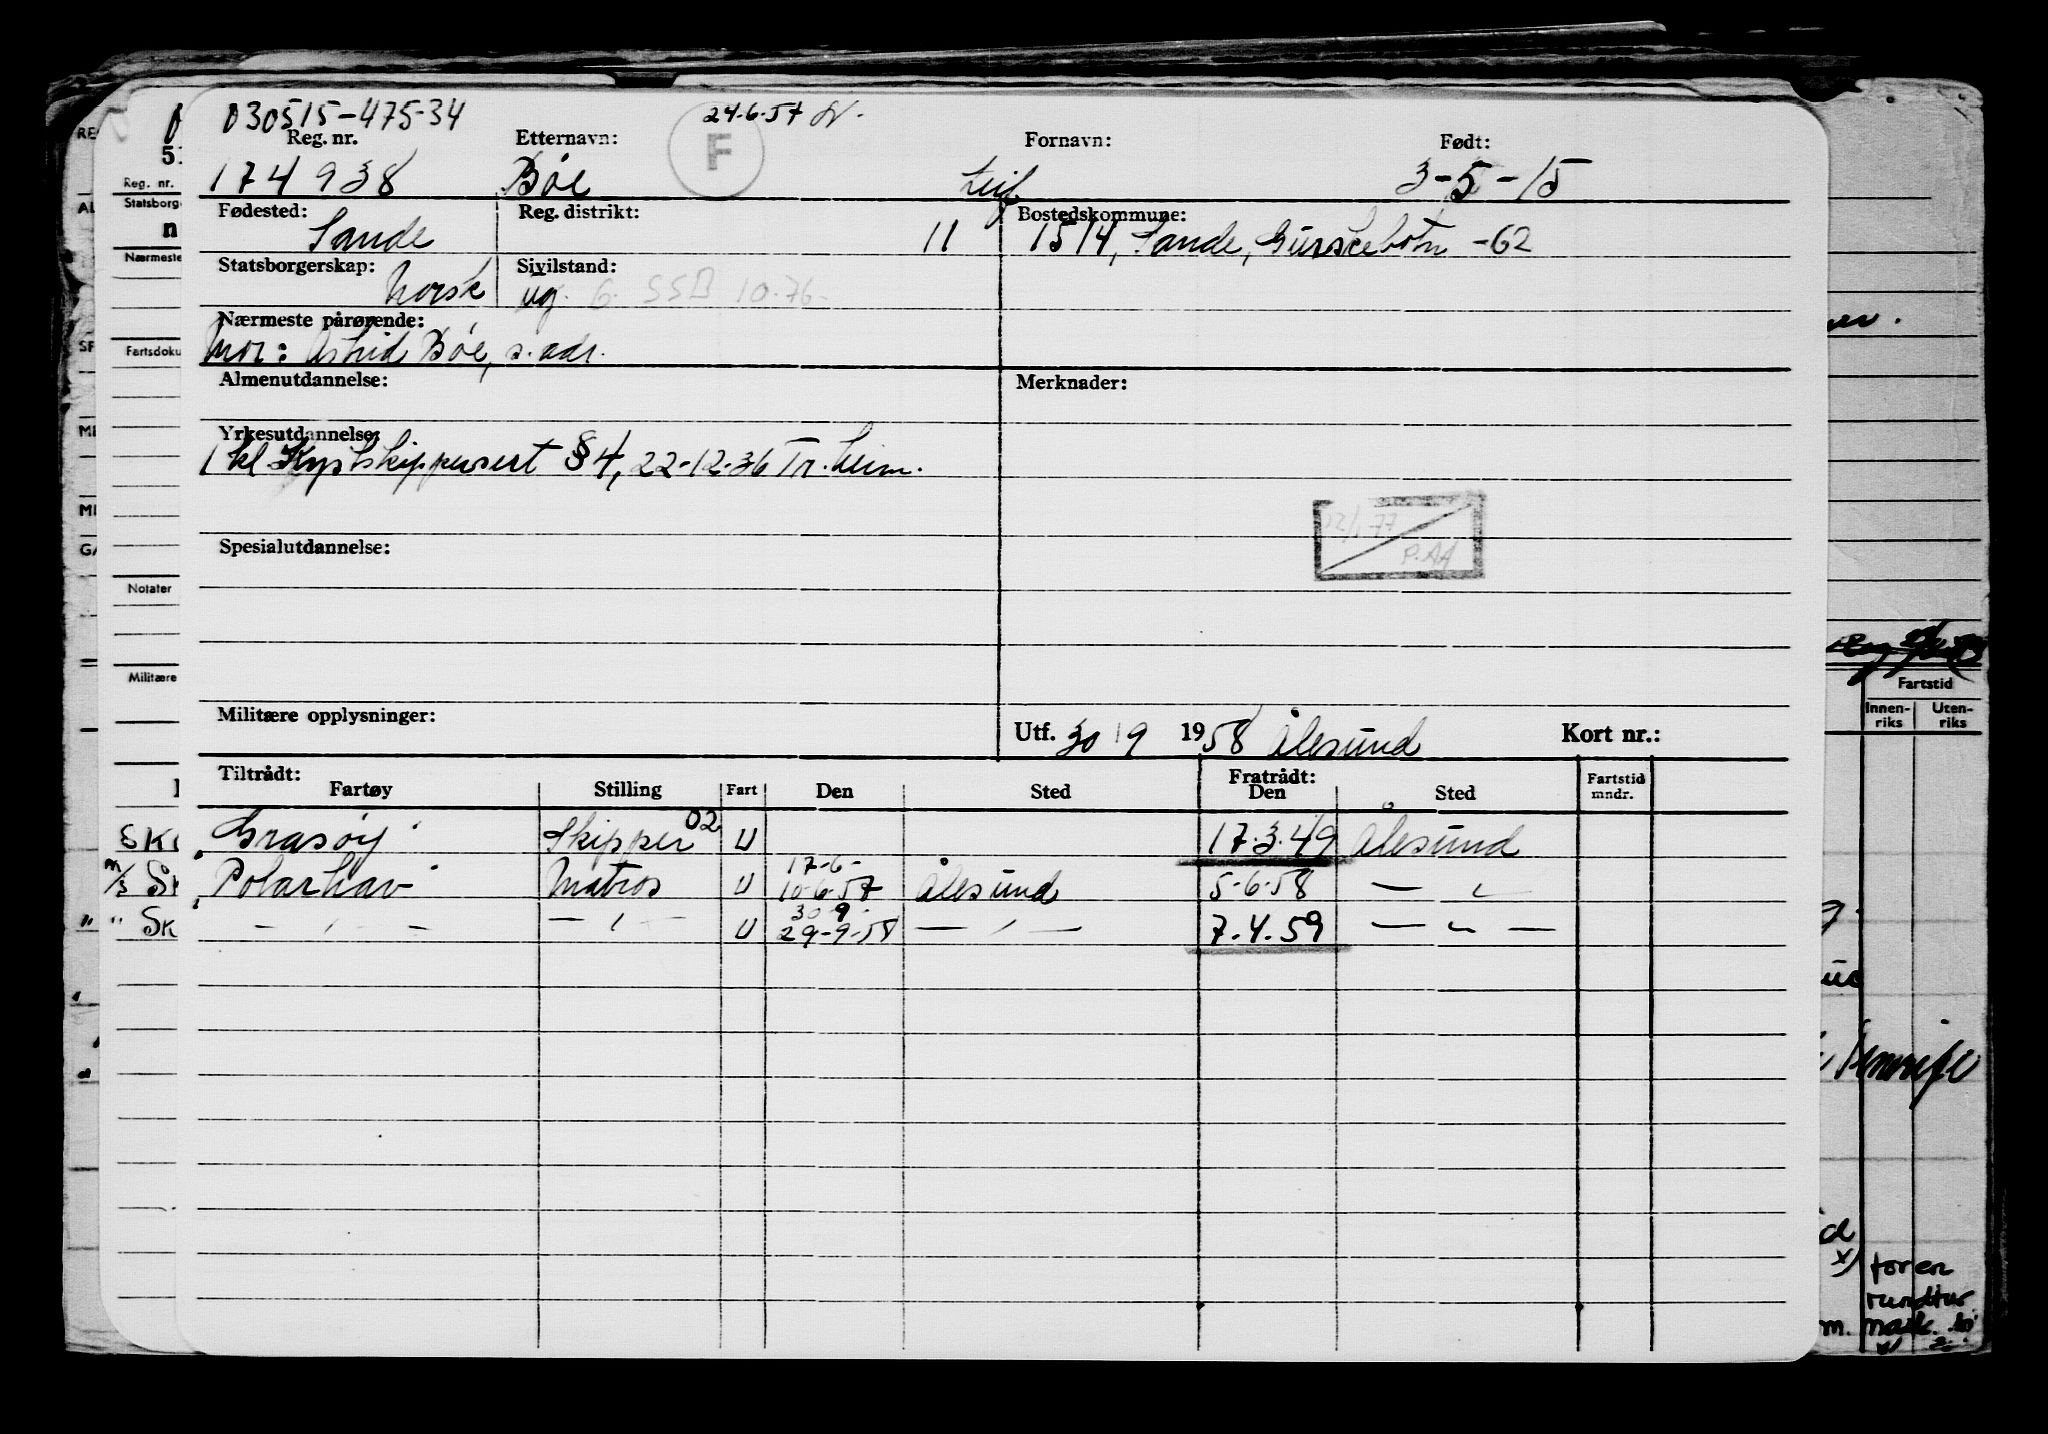 030515-475-34 24-6-57
Reg. nr. Etternavn: F Fornavn: Født:
174938 Bøe Leif 3-5-15
Fødested: Reg. distrikt: Bostedskommune:
Sande 11 1514, Sande, Gurskebotn -62
Statsborgerskap: Sivilstand:
Norsk ug. G. SSB 10.76-
Nærmeste pårørende:
Mor: Astrid Bøe, s. adr.
Almenutdannelse: Merknader:
Yrkesutdannelse:
1 kl Kystskippersert §4, 22-12-36 Tr.heim.
22/1 77
P.AA
Spesialutdannelse:
Militære opplysninger: Utf. 30/9 1958 Ålesund Kort nr.:
Tiltrådt: Fratrådt:
Fartøy Stilling Fart Den Sted Den Sted Fartstid mndr.
Grasøy Skipper 02 U 17.3.49 Ålesund
17-6-
m/s Polarhav Matros U 10-6-57 Ålesund 5-6-58 — " —
30 9.
" — " — — " — U 29-9-58 — " — 7.4.59 — " —
Reg. nr.
Notater
Fartstid
Innen-riks Uten-riks
for en
rundtur